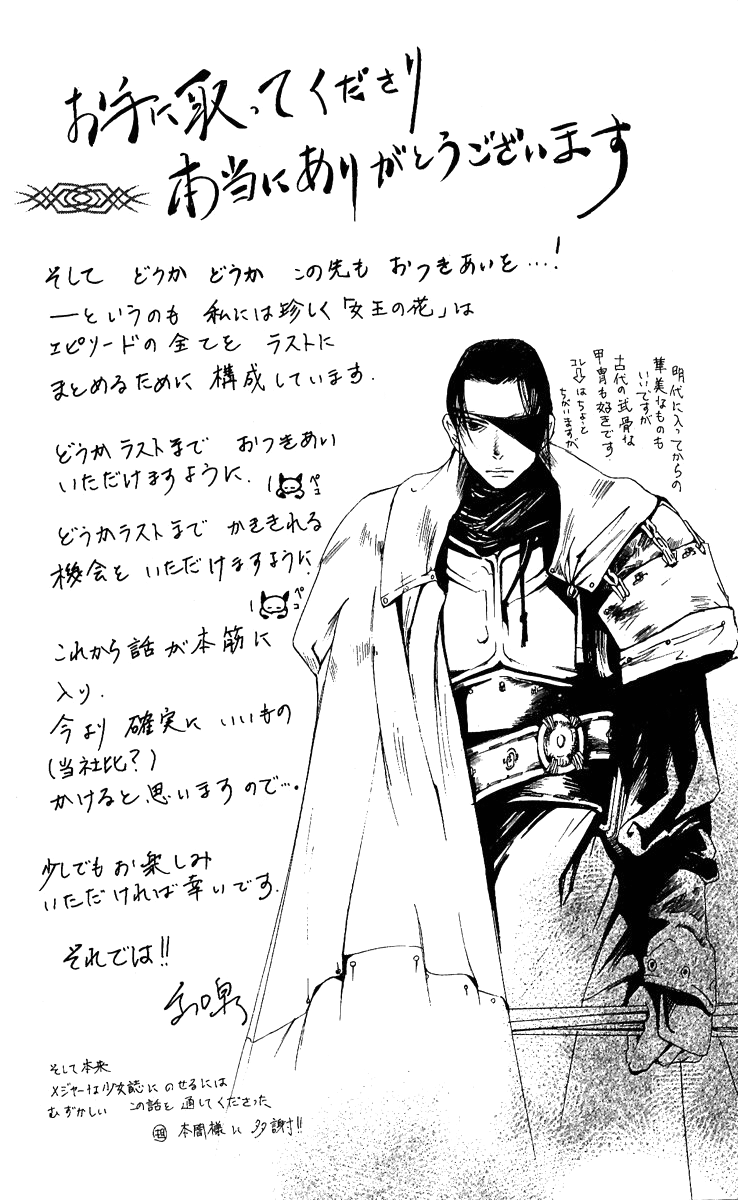 お手に取ってくださり
本当にありがとうございます
そして どうか どうか この先も おつきあいを…!
―というのも 私には珍しく「女王の花」は
エピソードの全てを ラストに
まとめるために 構成しています.
どうかラストまで おつきあい
いただけますように.
ペコ
どうかラストまで かききれる
機会を いただけますように.
ペコ
これから話が本筋に
入り.
今より 確実に いいもの
(当社比?)
かけると思いますので….
少しでもお楽しみ
いただければ幸いです.
それでは!!
和泉
明代に入ってからの
華美なものも
いいですが
古代の武骨な
甲冑も好きです.
コレ⇩はちょっと
ちがいますが
そして本来
メジャーな少女誌に のせるには
むずかしい この話を 通してくださった
担 本間様に 多謝!!